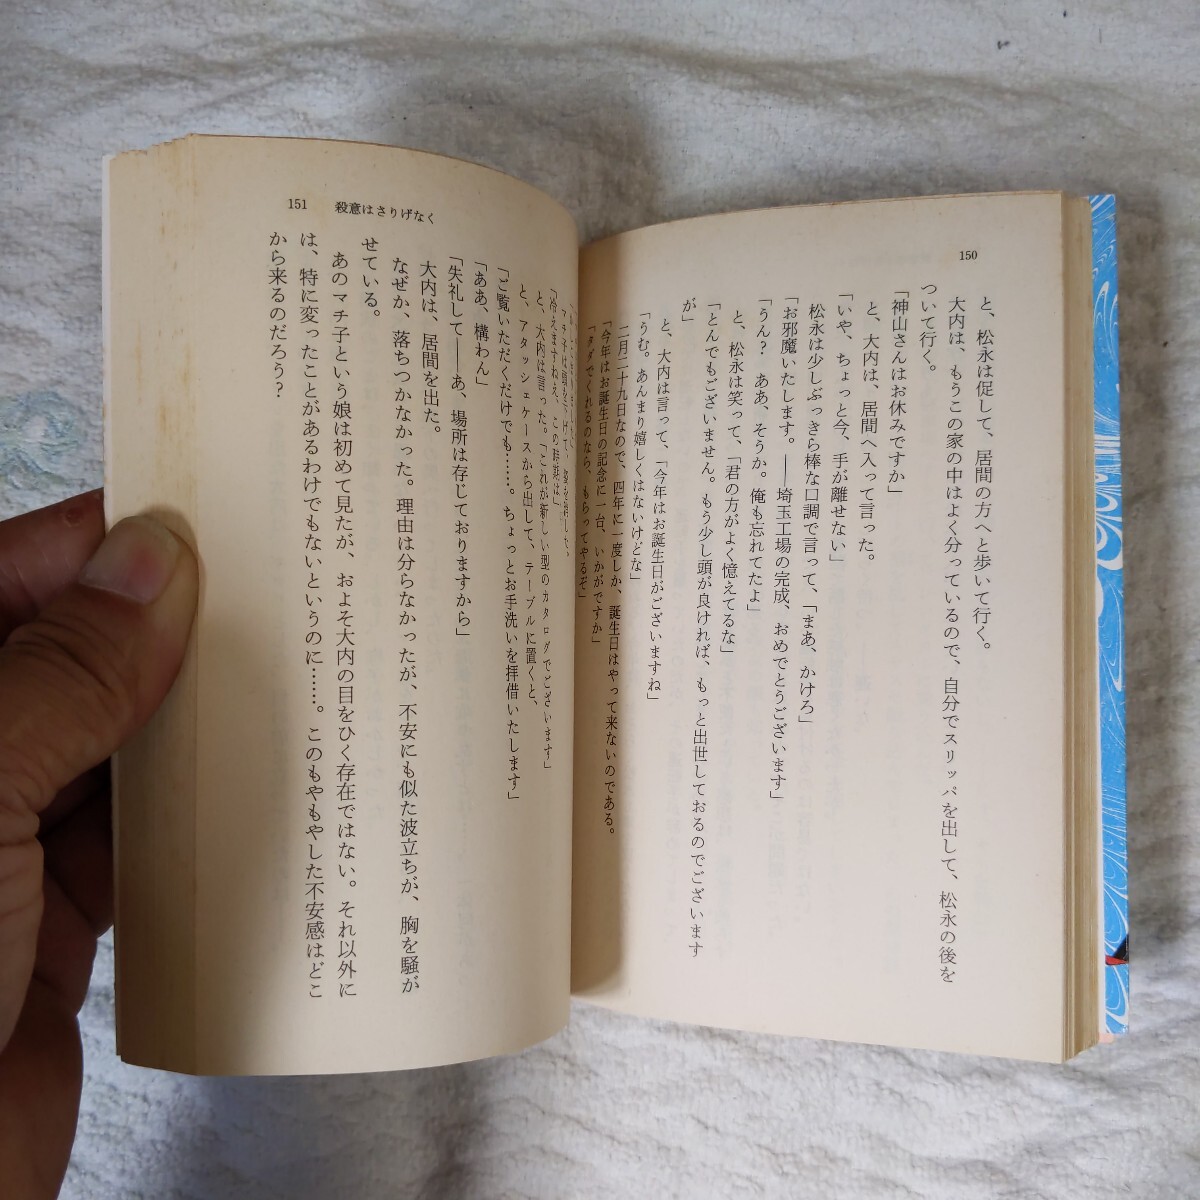 150
と、松永は促して、居間の方へと歩いて行く。
大内は、もうこの家の中はよく分っているので、自分でスリッパを出して、松永の後を
ついて行く。
「神山さんはお休みですか」
と、大内は、居間へ入って言った。
「いや、ちょっと今、手が離せない」
松永は少しぶっきら棒な口調で言って、「まあ、かけろ」
「お邪魔いたします。――埼玉工場の完成、おめでとうございます」
「うん？　ああ、そうか。俺も忘れてたよ」
と、松永は笑って、「君の方がよく憶えてるな」
「とんでもございません。もう少し頭が良ければ、もっと出世しておるのでございます
が」
と、大内は言って、「今年はお誕生日がございますね」
「うむ。あんまり嬉しくはないけどな」
二月二十九日なので、四年に一度しか、誕生日はやって来ないのである。
「今年はお誕生日の記念に一台、いかがですか」
「タダでくれるのなら、もらってやるぞ」
151　殺意はさりげなく
マチ子は頭を下げて、姿を消した。
「冷えますねえ、この時期は」
と、大内は言った。「これが新しい型のカタログでございます」
と、アタッシェケースから出して、テーブルに置くと、
「ご覧いただくだけでも……。ちょっとお手洗いを拝借いたします」
「ああ、構わん」
「失礼して――あ、場所は存じておりますから」
大内は、居間を出た。
なぜか、落ちつかなかった。理由は分らなかったが、不安にも似た波立ちが、胸を騒が
せている。
あのマチ子という娘は初めて見たが、およそ大内の目をひく存在ではない。それ以外に
は、特に変ったことがあるわけでもないというのに……。このもやもやした不安感はどこ
から来るのだろう？